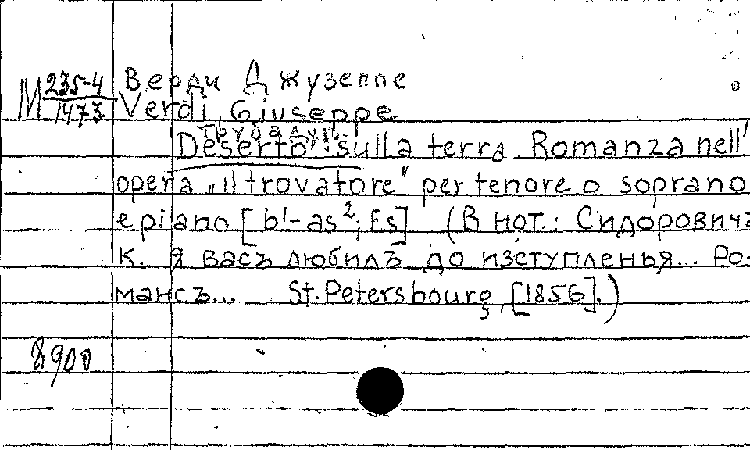 М 235-4/1473 Верди Джузеппе
Verdi Giuseppe
Трубадур
Deserto sulla terra. Romanza nell'
opera „Il trovatore" per tenore o soprano
e piano [b¹-as²; Es] (В нот.: Сидоровичъ
К. Я васъ любилъ до изступленья... Ро-
мансъ... St. Petersbourg, [1856].)
8900